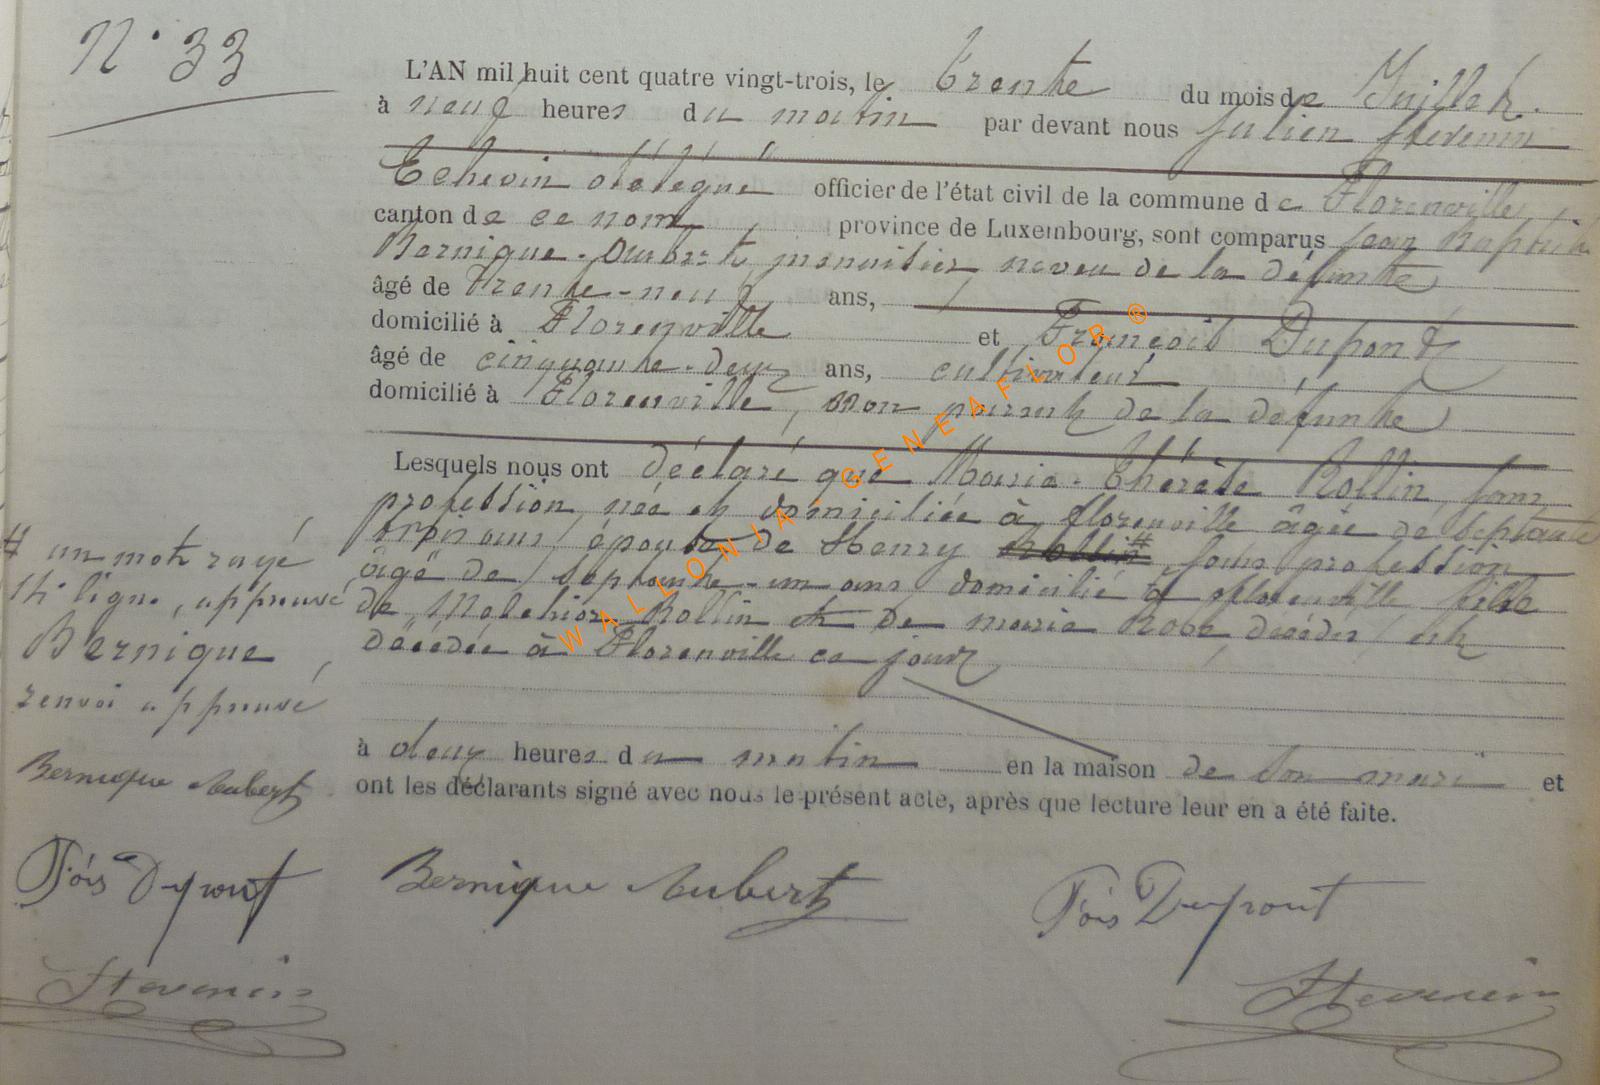 N° 33
L'AN mil huit cent quatre vingt-trois, le trente du mois de Juillet.
à neuf heures du matin par devant nous Julien Stevenin
Echevin délégué officier de l'état civil de la commune de Florenville
canton de ce nom province de Luxembourg, sont comparus Jean Baptiste
Bernique-Aubert, menuisier neveu de la défunte
âgé de trente-neuf ans,
domicilié à Florenville et François Dupont
âgé de cinquante-deux ans, cultivateur
domicilié à Florenville, non parent de la défunte
Lesquels nous ont déclaré que Marie-Thérèse Rollin, sans
profession, née et domiciliée à florenville âgée de septante
ans, épouse de Henry Rollin # sans profession
âgé de septante-un ans domicilié à florenville fille
de Melchior Rollin et de marie Robe, décédés, est
décédée à Florenville ce jour
à deux heures du matin en la maison de son mari et
ont les déclarants signé avec nous le présent acte, après que lecture leur en a été faite.
# un mot rayé
ligne, approuvé
Bernique
renvoi approuvé
Bernique Aubert
Fois Dupont
Stevenin
Bernique Aubert
Fois Dupont
Stevenin
WALLONIA-GENEAFLOR®